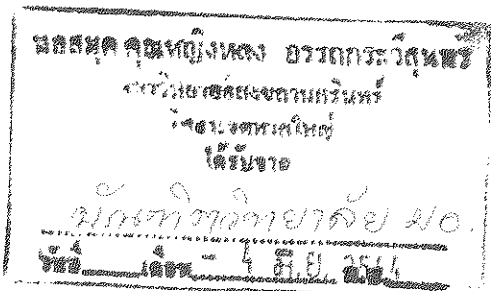 หอสมุด คุณหญิงหลง อรรถกระวีสุนทร
มหาวิทยาลัยสงขลานครินทร์
วิทยาเขตหาดใหญ่
ได้รับจาก
บัณฑิตวิทยาลัย มอ.
วันที่ เดือน - 4 มิ.ย. 2544